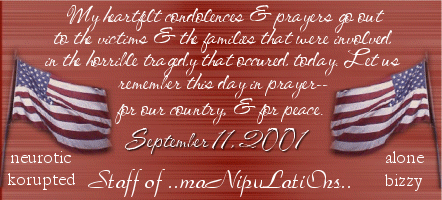 My heartfelt condolences & prayers go out
to the victims & the families that were involved
in the horrible tragedy that occured today. Let us
remember this day in prayer--
for our country, & for peace.
September 11, 2001
neurotic
korupted
alone
bizzy
Staff of ..maNipuLatiOns..